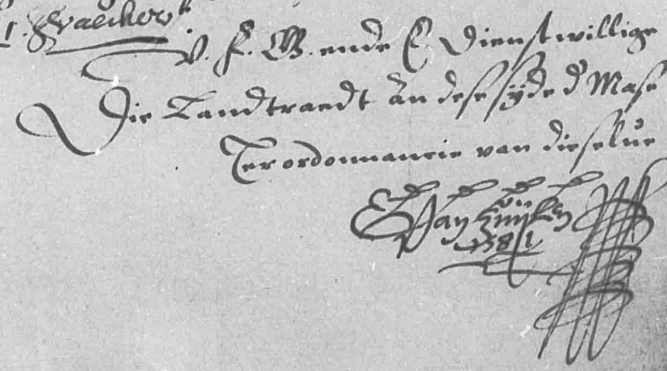 V. F. G. ende E. Dienstwillige
Die Landtraedt an dese syde d' Mase
Ter ordonnancie van dieselue
1581